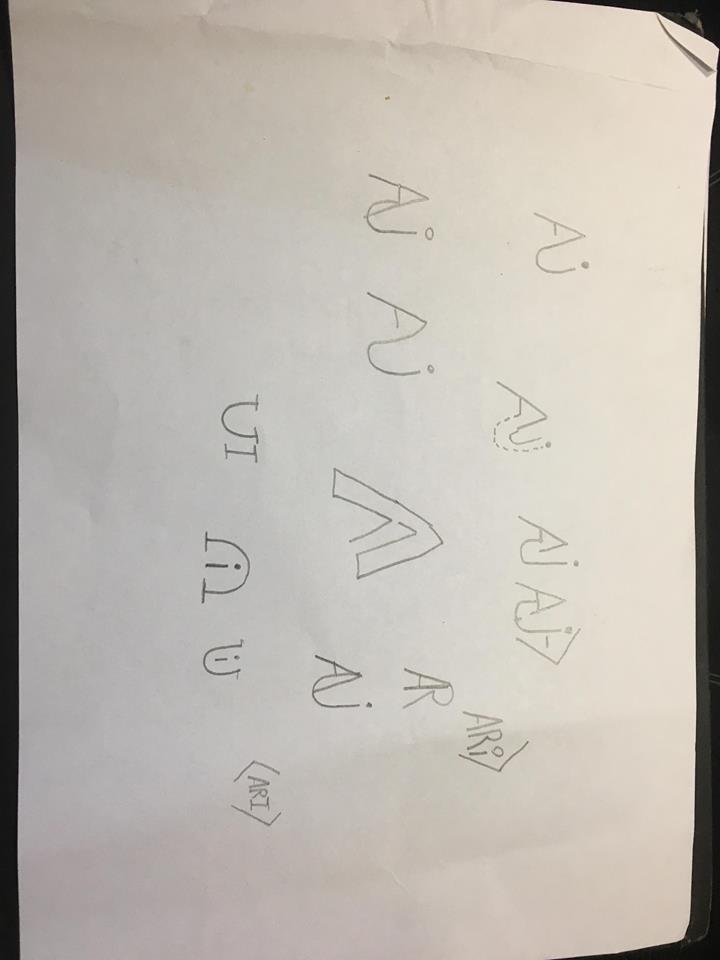 Aj Aj Aj Aj
ARi
Aj Aj AR
Aj
UI i Ui ⟨ARI⟩